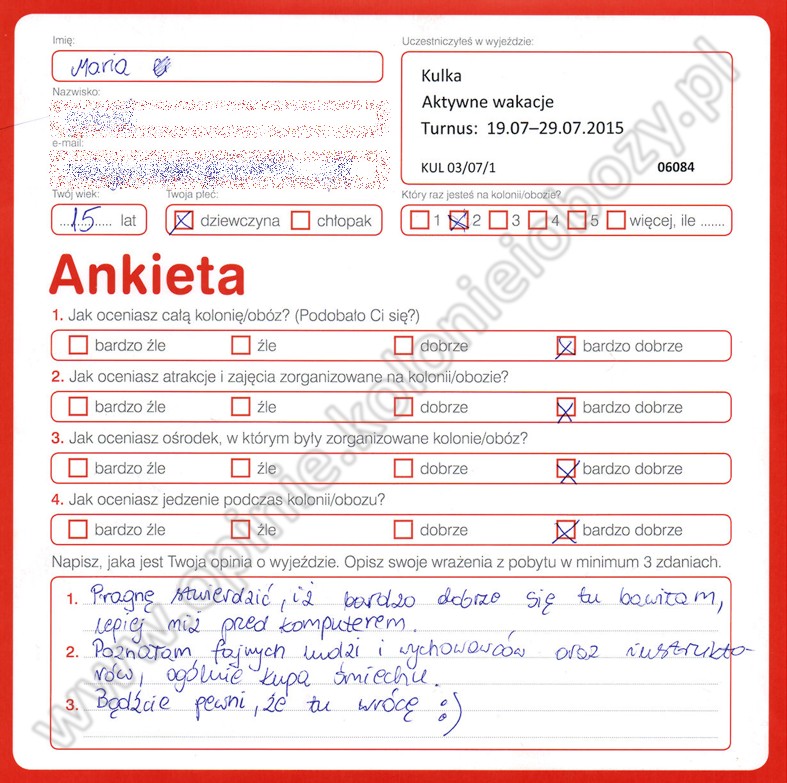 Imię:
Maria
Uczestniczyłeś w wyjeździe:
Kulka
Aktywne wakacje
Turnus: 19.07–29.07.2015
KUL 03/07/1 06084
Nazwisko:
e-mail:
Twój wiek: Twoja płeć: Który raz jesteś na kolonii/obozie?
15 lat dziewczyna chłopak 1 2 3 4 5 więcej, ile .......
Ankieta
1. Jak oceniasz całą kolonię/obóz? (Podobało Ci się?)
bardzo źle źle dobrze bardzo dobrze
2. Jak oceniasz atrakcje i zajęcia zorganizowane na kolonii/obozie?
bardzo źle źle dobrze bardzo dobrze
3. Jak oceniasz ośrodek, w którym były zorganizowane kolonie/obóz?
bardzo źle źle dobrze bardzo dobrze
4. Jak oceniasz jedzenie podczas kolonii/obozu?
bardzo źle źle dobrze bardzo dobrze
Napisz, jaka jest Twoja opinia o wyjeździe. Opisz swoje wrażenia z pobytu w minimum 3 zdaniach.
1. Pragnę stwierdzić, iż bardzo dobrze się tu bawiłam,
lepiej niż przed komputerem.
2. Poznałam fajnych ludzi i wychowawców oraz instrukto-
rów, ogólnie kupa śmiechu.
3. Bądźcie pewni, że tu wrócę :)
www.opinie.kolonieiobozy.pl